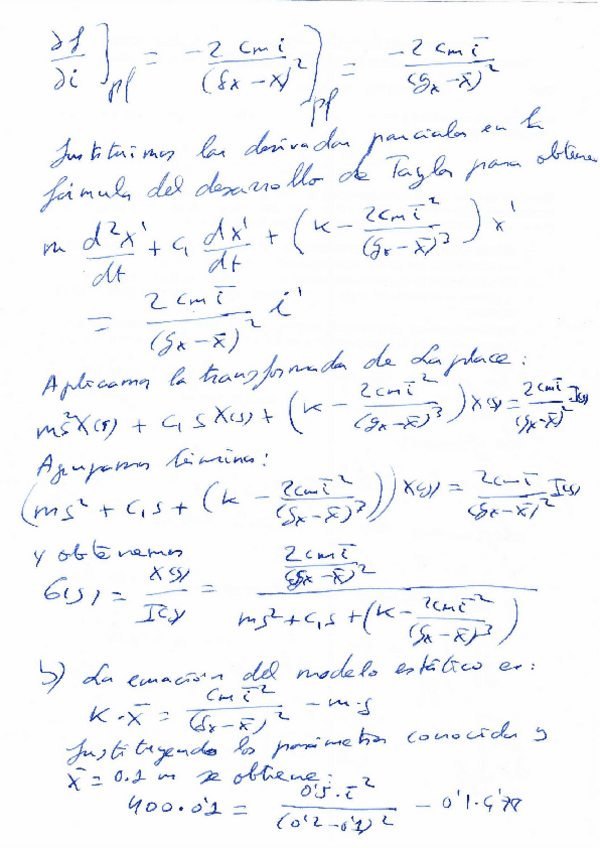 ∂f/∂i ]pf = -2 cm i/(gx - x)² ]pf = -2 cm ī/(gx - x̄)²
Sustituimos las derivadas parciales en la
fórmula del desarrollo de Taylor para obtener
m d²x'/dt + c₁ dx'/dt + (K - 2cm ī²/(gx - x̄)³) x'
= 2 cm ī/(gx - x̄)² i'
Aplicamos la transformada de Laplace:
ms²X(s) + c₁ s X(s) + (K - 2cm ī²/(gx - x̄)³) X(s) = 2cm ī/(gx - x̄)² I(s)
Agrupamos términos:
(ms² + c₁ s + (K - 2cm ī²/(gx - x̄)³)) X(s) = 2cm ī/(gx - x̄)² I(s)
y obtenemos
G(s) = X(s)/I(s) = (2cm ī/(gx - x̄)²)/(ms² + c₁ s + (K - 2cm ī²/(gx - x̄)³))
b) La ecuación del modelo estático es:
K · x̄ = cm ī²/(gx - x̄)² - m·g
Sustituyendo los parámetros conocidos y
x̄ = 0.1 m se obtiene:
400 · 0'1 = 0'5 · ī²/(0'2 - 0'1)² - 0'1 ·